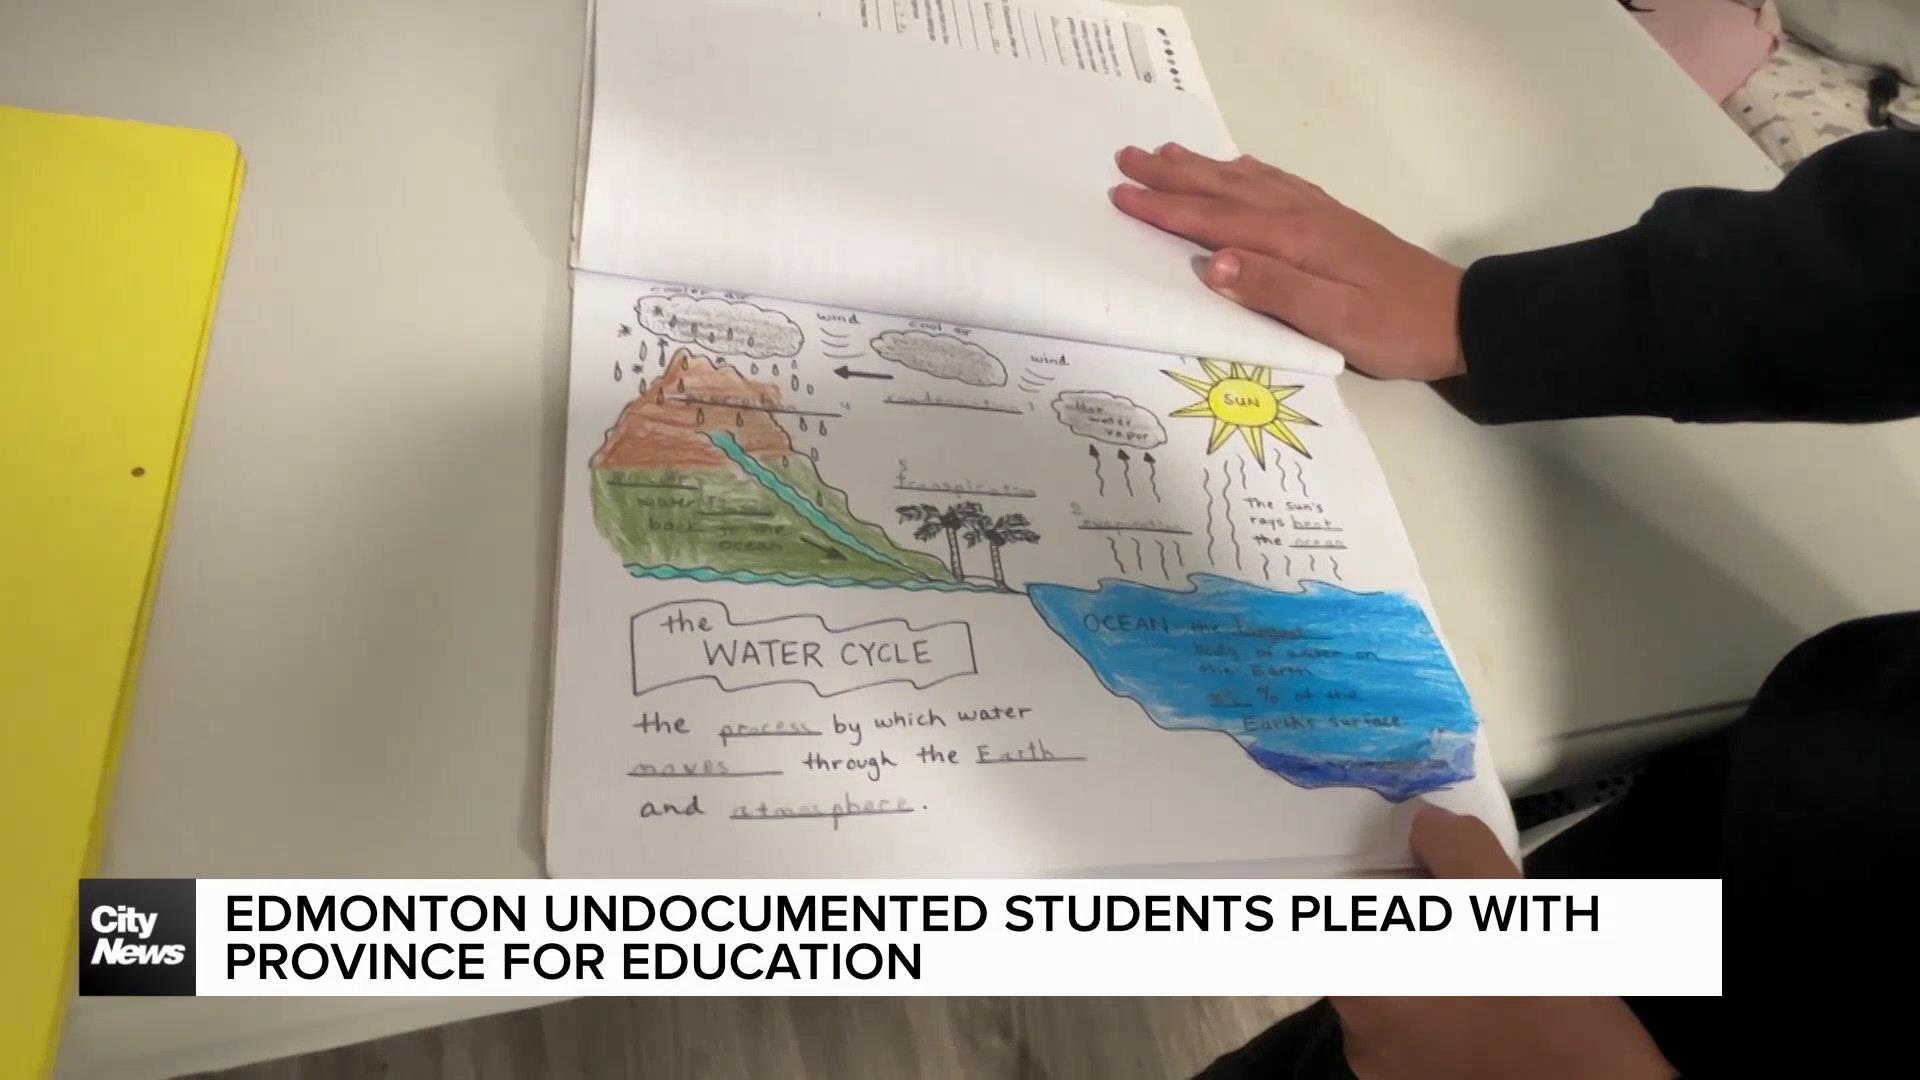 cooler air
wind
cool air
wind
SUN
precipitation 4
condensation 3
water
vapor
5
transpiration
2
evaporation
The sun's
rays heat
the ocean
water
back to the
ocean
OCEAN the largest
body of water on
the Earth
% of the
Earth's surface.
the
WATER CYCLE
the process by which water
moves through the Earth
and atmosphere.
City
News
EDMONTON UNDOCUMENTED STUDENTS PLEAD WITH
PROVINCE FOR EDUCATION